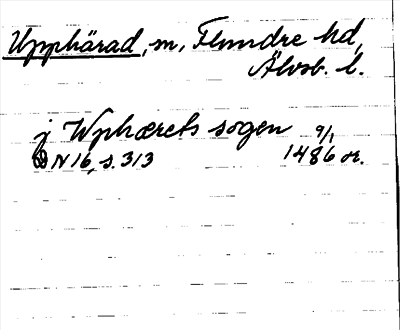 Upphärad, sn, Flundre hd,
Älvsb. l.
j Wphærets sogen 9/1
N 16, s. 313 1486 or.